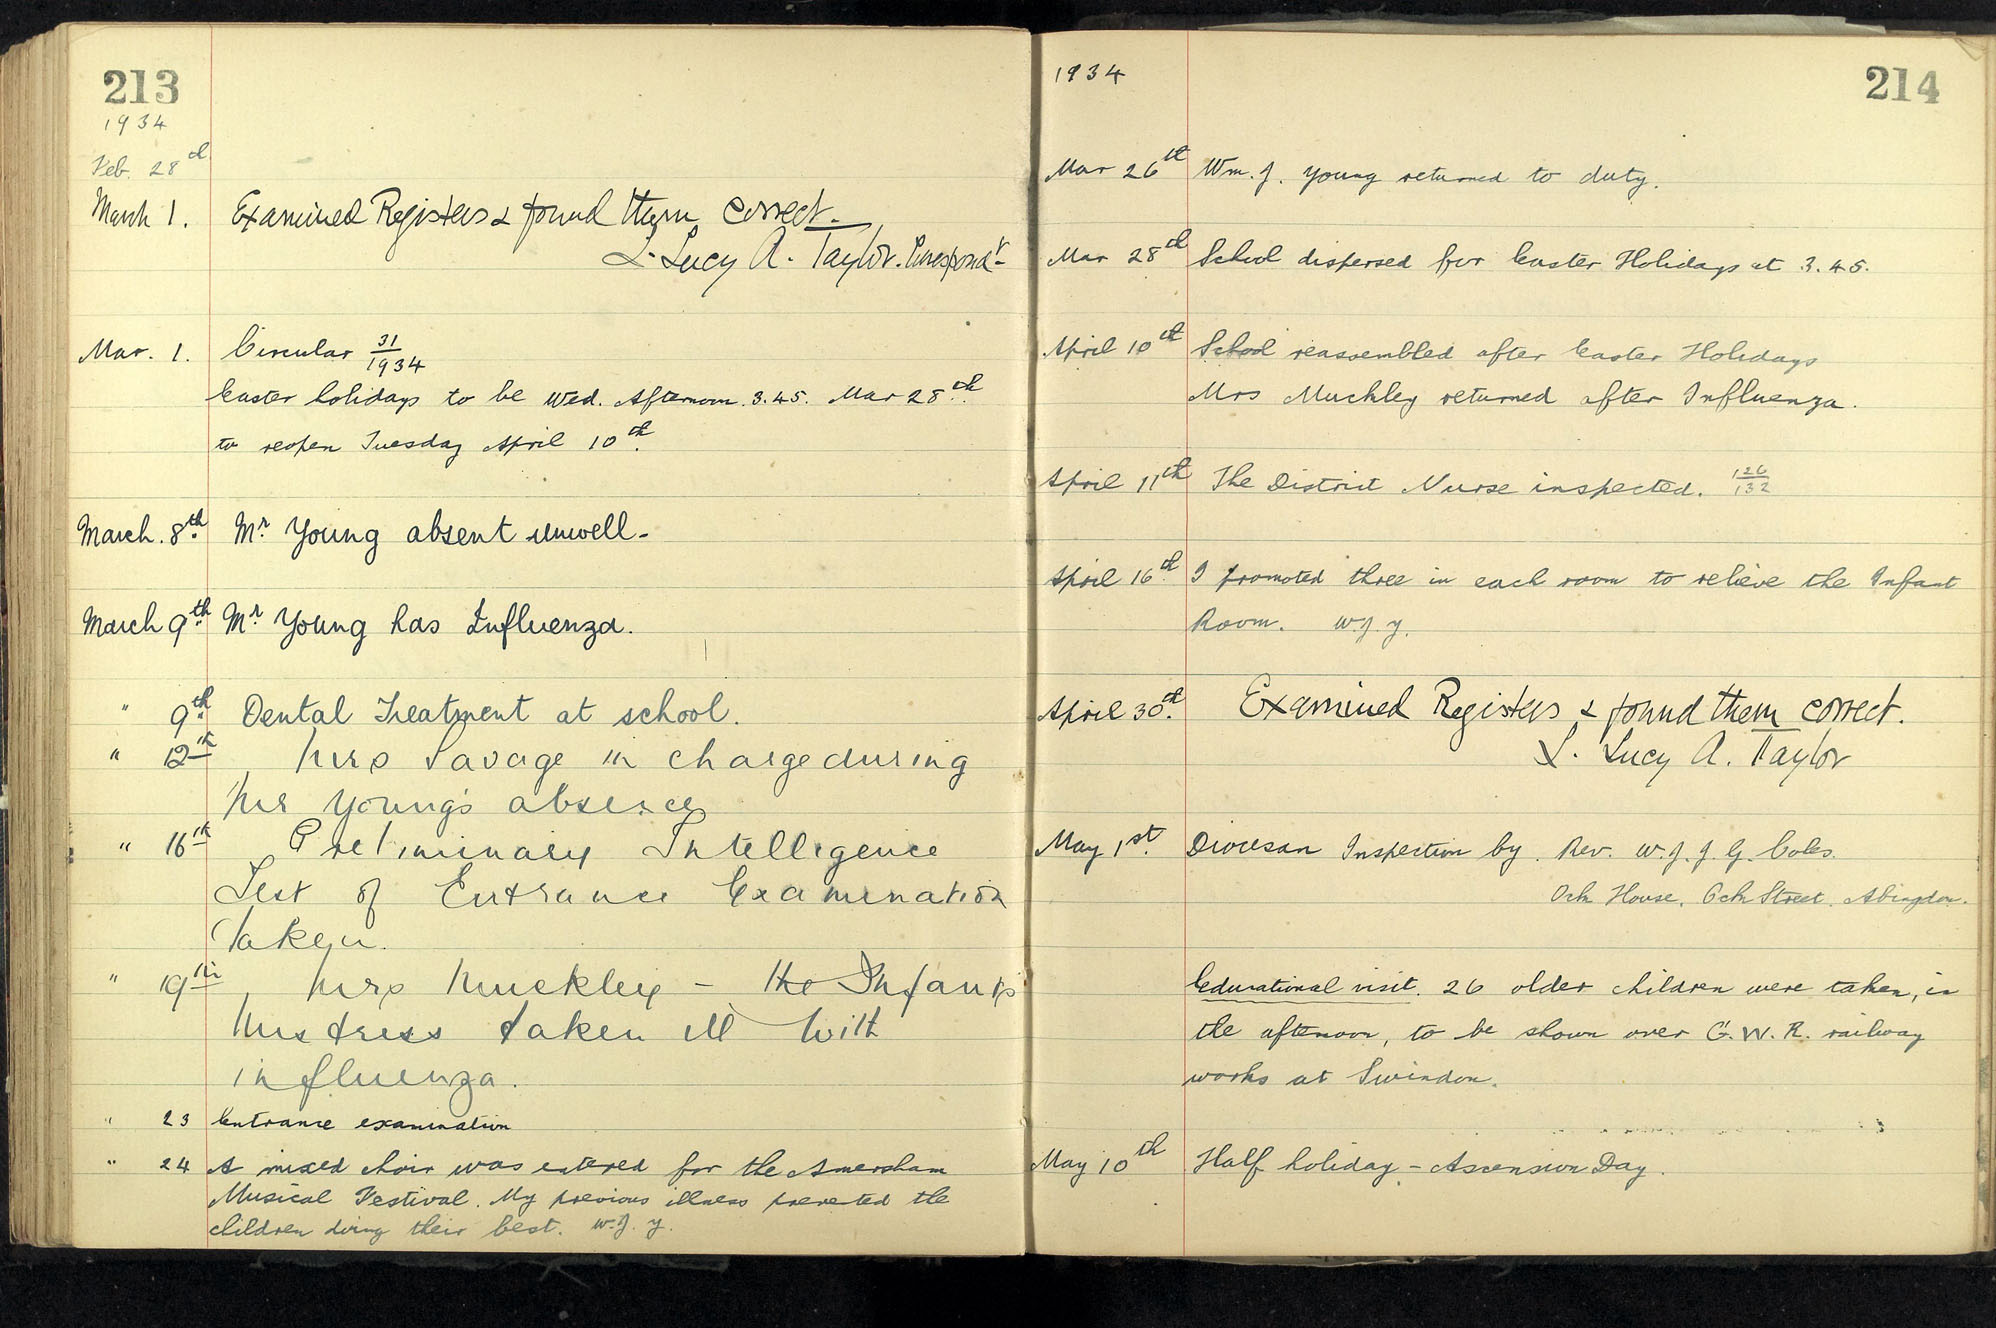 213
1934
Feb. 28th
March 1. Examined Registers & found them correct.
L. Lucy A. Taylor. Correspondt
Mar. 1. Circular 31/1934
Easter holidays to be Wed. Afternoon 3.45. Mar 28th
to reopen Tuesday April 10th.
March. 8th. Mr. Young absent unwell.
March 9th. Mr. Young has Influenza.
" 9th. Dental Treatment at school.
" 12th Mrs Savage in charge during
Mr Young's absence
" 16th Preliminary Intelligence
Test of Entrance Examination
taken.
" 19th Mrs Muckley - the Infants
Mistress taken ill with
influenza.
" 23 Entrance examination
" 24 A mixed choir was entered for the Amersham
Musical Festival. My previous illness prevented the
children doing their best. W.J.Y.
1934
214
Mar 26th Wm. J. Young returned to duty.
Mar 28th School dispersed for Easter Holidays at 3.45.
April 10th School reassembled after Easter Holidays
Mrs Muckley returned after Influenza.
April 11th The District Nurse inspected. 126/132
April 16th. I promoted three in each room to relieve the Infant
Room. W.J.Y.
April 30th. Examined Registers & found them correct.
L. Lucy A. Taylor
May 1st. Diocesan Inspection by Rev. W.J.J.G. Coles.
Ock House, Ock Street, Abingdon.
Educational visit. 26 older children were taken, in
the afternoon, to be shown over G.W.R. railway
works at Swindon.
May 10th Half holiday - Ascension Day.